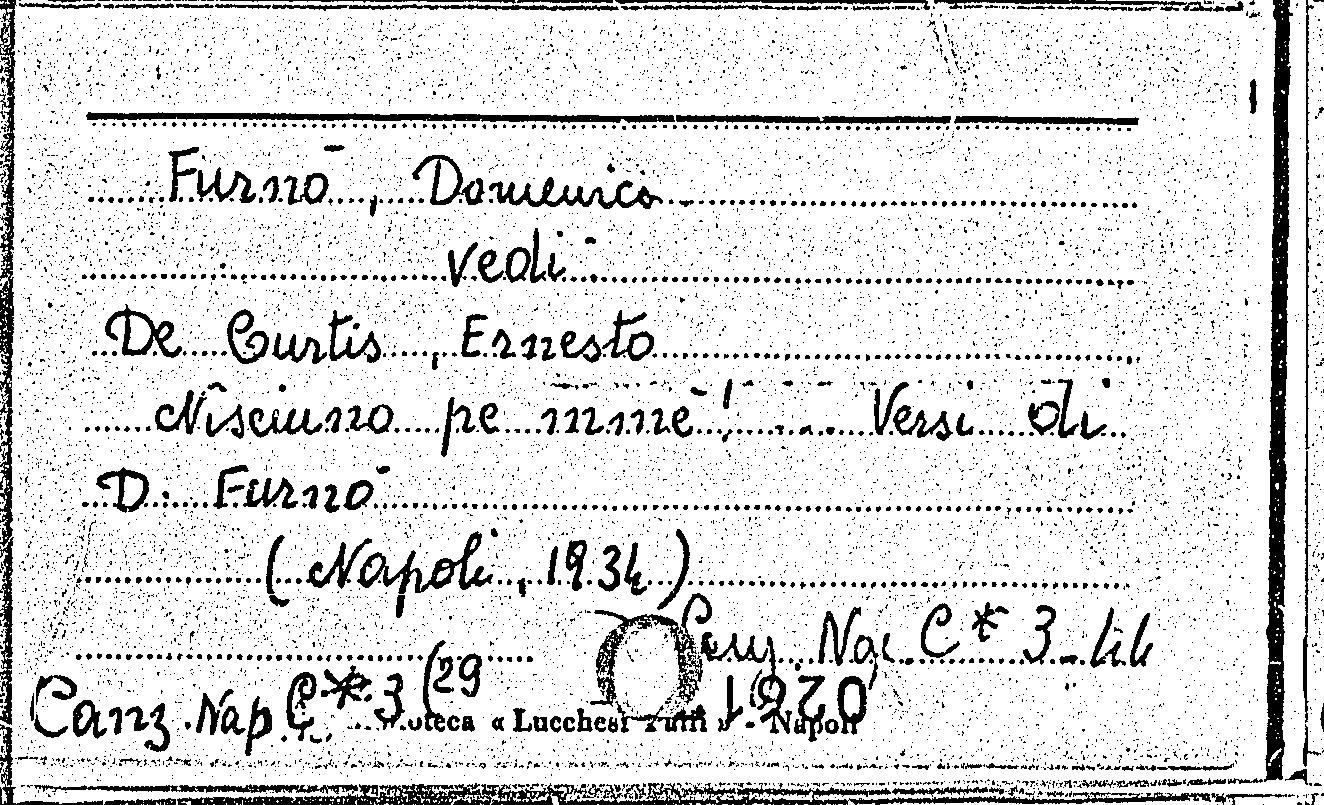 Furnò, Domenico.
Vedi:
De Curtis, Ernesto
Nisciuno pe mme! ... Versi di
D. Furnò
(Napoli, 1934)
Canz. Na. C* 3
Canz. Nap. C* 3 (29
« Lucchesi Palli » - Napoli